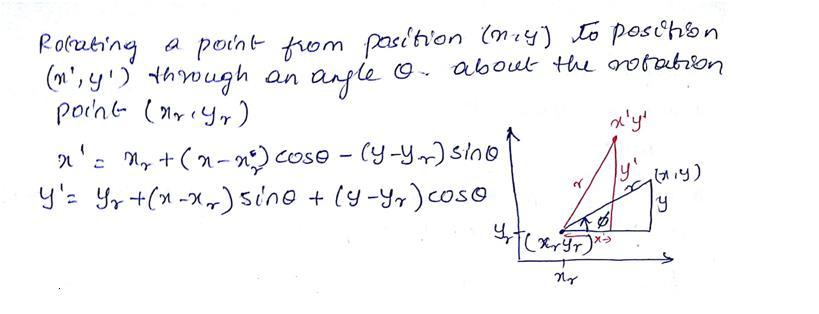 Rotating a point from position (x,y) to position
(x',y') through an angle θ. about the rotation
point (xr,yr)
x' = xr+(x-xr)cosθ-(y-yr)sinθ
y'= yr+(x-xr)sinθ+(y-yr)cosθ
x'y'
r
y'
r
(x,y)
y
ϕ
yr
(xryr)
x→
xr